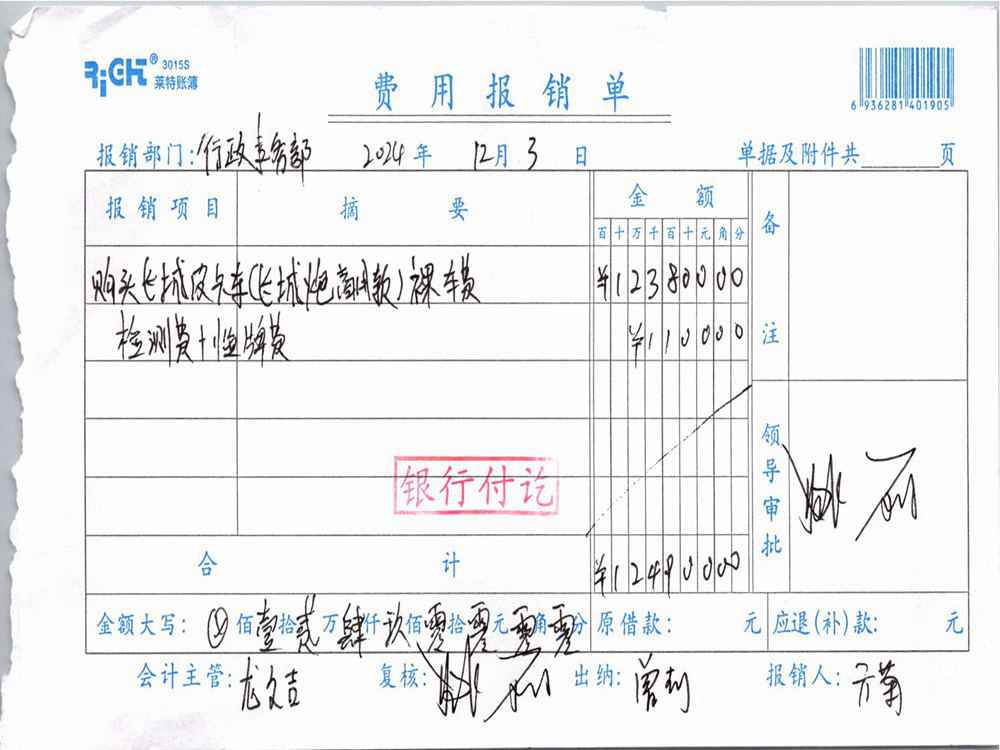 RiGHT® 3015S
莱特账簿
费用报销单
6 936281 401905
报销部门:行政事务部 2024年 12月 3日 单据及附件共 页
报销项目 摘要 金额 备注
百 十 万 千 百 十 元 角 分
购买长城皮卡车(长城炮商用款)裸车费 ¥12380000
检测费+临牌费 ¥110000
银行付讫
领导审批
合计 ¥12490000
金额大写: ⊗佰壹拾贰万肆仟玖佰零拾零元零角零分 原借款: 元 应退(补)款: 元
会计主管:龙文吉 复核: 出纳: 曾利 报销人: